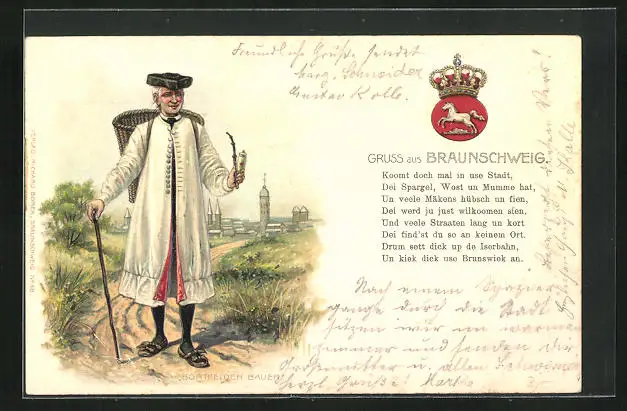 Freundliche Grüße sendet
Marg. Schneider
Gustav Kolle.
GRUSS aus BRAUNSCHWEIG.
Koomt doch mal in use Stadt,
Dei Spargel, Wost un Mumme hat,
Un veele Mäkens hübsch un fien,
Dei werd ju just wilkoomen sien.
Und veele Straaten lang un kort
Dei find'st du so an keinem Ort.
Drum sett dick up de Iserbahn,
Un kiek dick use Brunswiek an.
Nach einem Spazier
gange durch die Stadt
sitzen wir im warmen
Zimmer und senden dir
Grossmutter u. allen
herzl. Grüße!
BORTFELDER BAUER